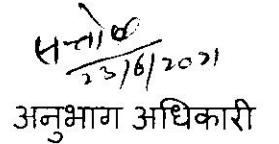 सन्तोष
23/6/2021
अनुभाग अधिकारी